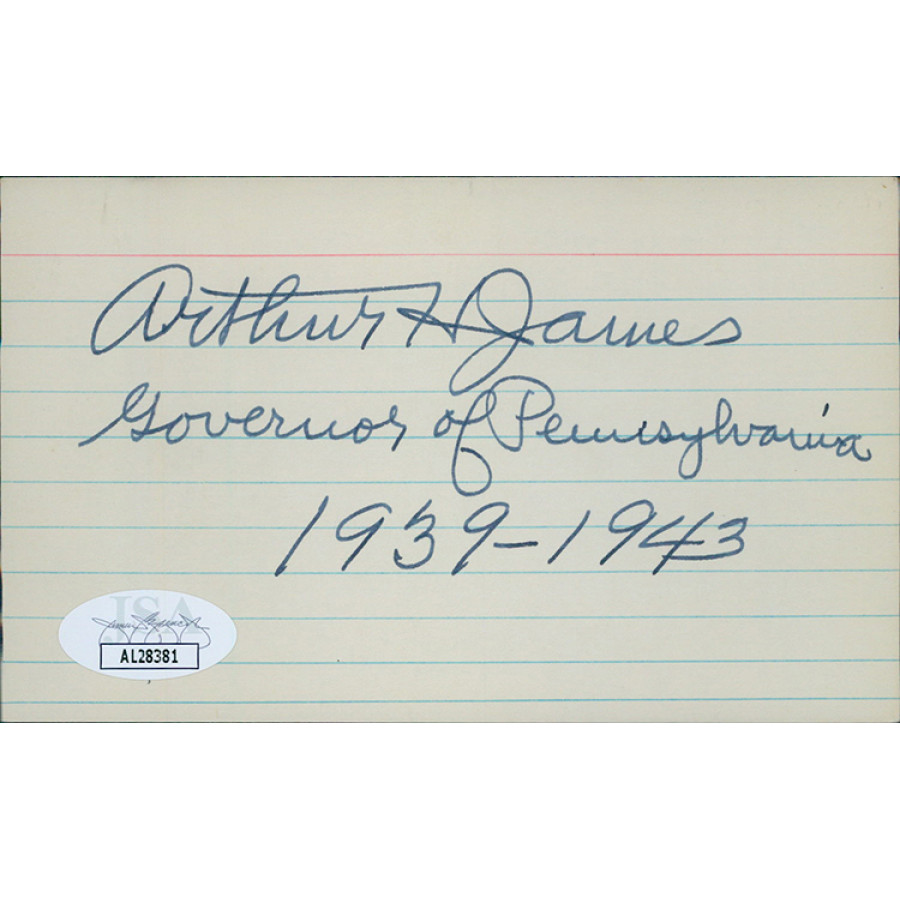 Arthur H James
Governor of Pennsylvania
1939-1943
JSA
AL28381